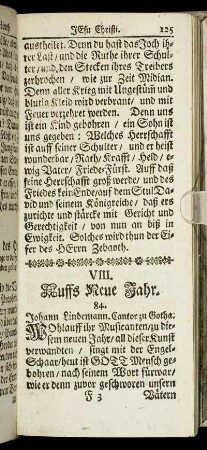 JEsu Christi. 125
austheilet. Denn du hast das Joch ih-
rer Last/ und die Ruthe ihrer Schul-
ter/ und den Stecken ihres Treibers
zerbrochen / wie zur Zeit Midian.
Denn aller Krieg mit Ungestüm und
blutig Kleid wird verbrant/ und mit
Feuer verzehret werden. Denn uns
ist ein Kind gebohren / ein Sohn ist
uns gegeben/ Welches Herrschafft
ist auff seiner Schulter/ und er heist
wunderbar/ Rath/ Krafft/ Held/ e-
wig Vater/ Friede-Fürst. Auff daß
seine Herrschafft groß werde/ und des
Friedes kein Ende/ auf dem Stul Da-
vid und seinem Königreiche/ daß ers
zurichte und stärcke mit Gericht und
Gerechtigkeit / von nun an biß in
Ewigkeit. Solches wird thun der Ei-
fer des HErrn Zebaoth.
VIII.
Auffs Neue Jahr.
84.
Johann Lindemann, Cantor zu Gotha.
WOhlauff ihr Musicanten/ zu die-
sem neuen Jahr/ all dieser Kunst
verwandten / singt mit der Engel-
Schaar/ heut ist GOTT Mensch ge-
bohren/ nach seinem Wort fürwar/
wie er denn zuvor geschworen unsern
F 3 Vätern